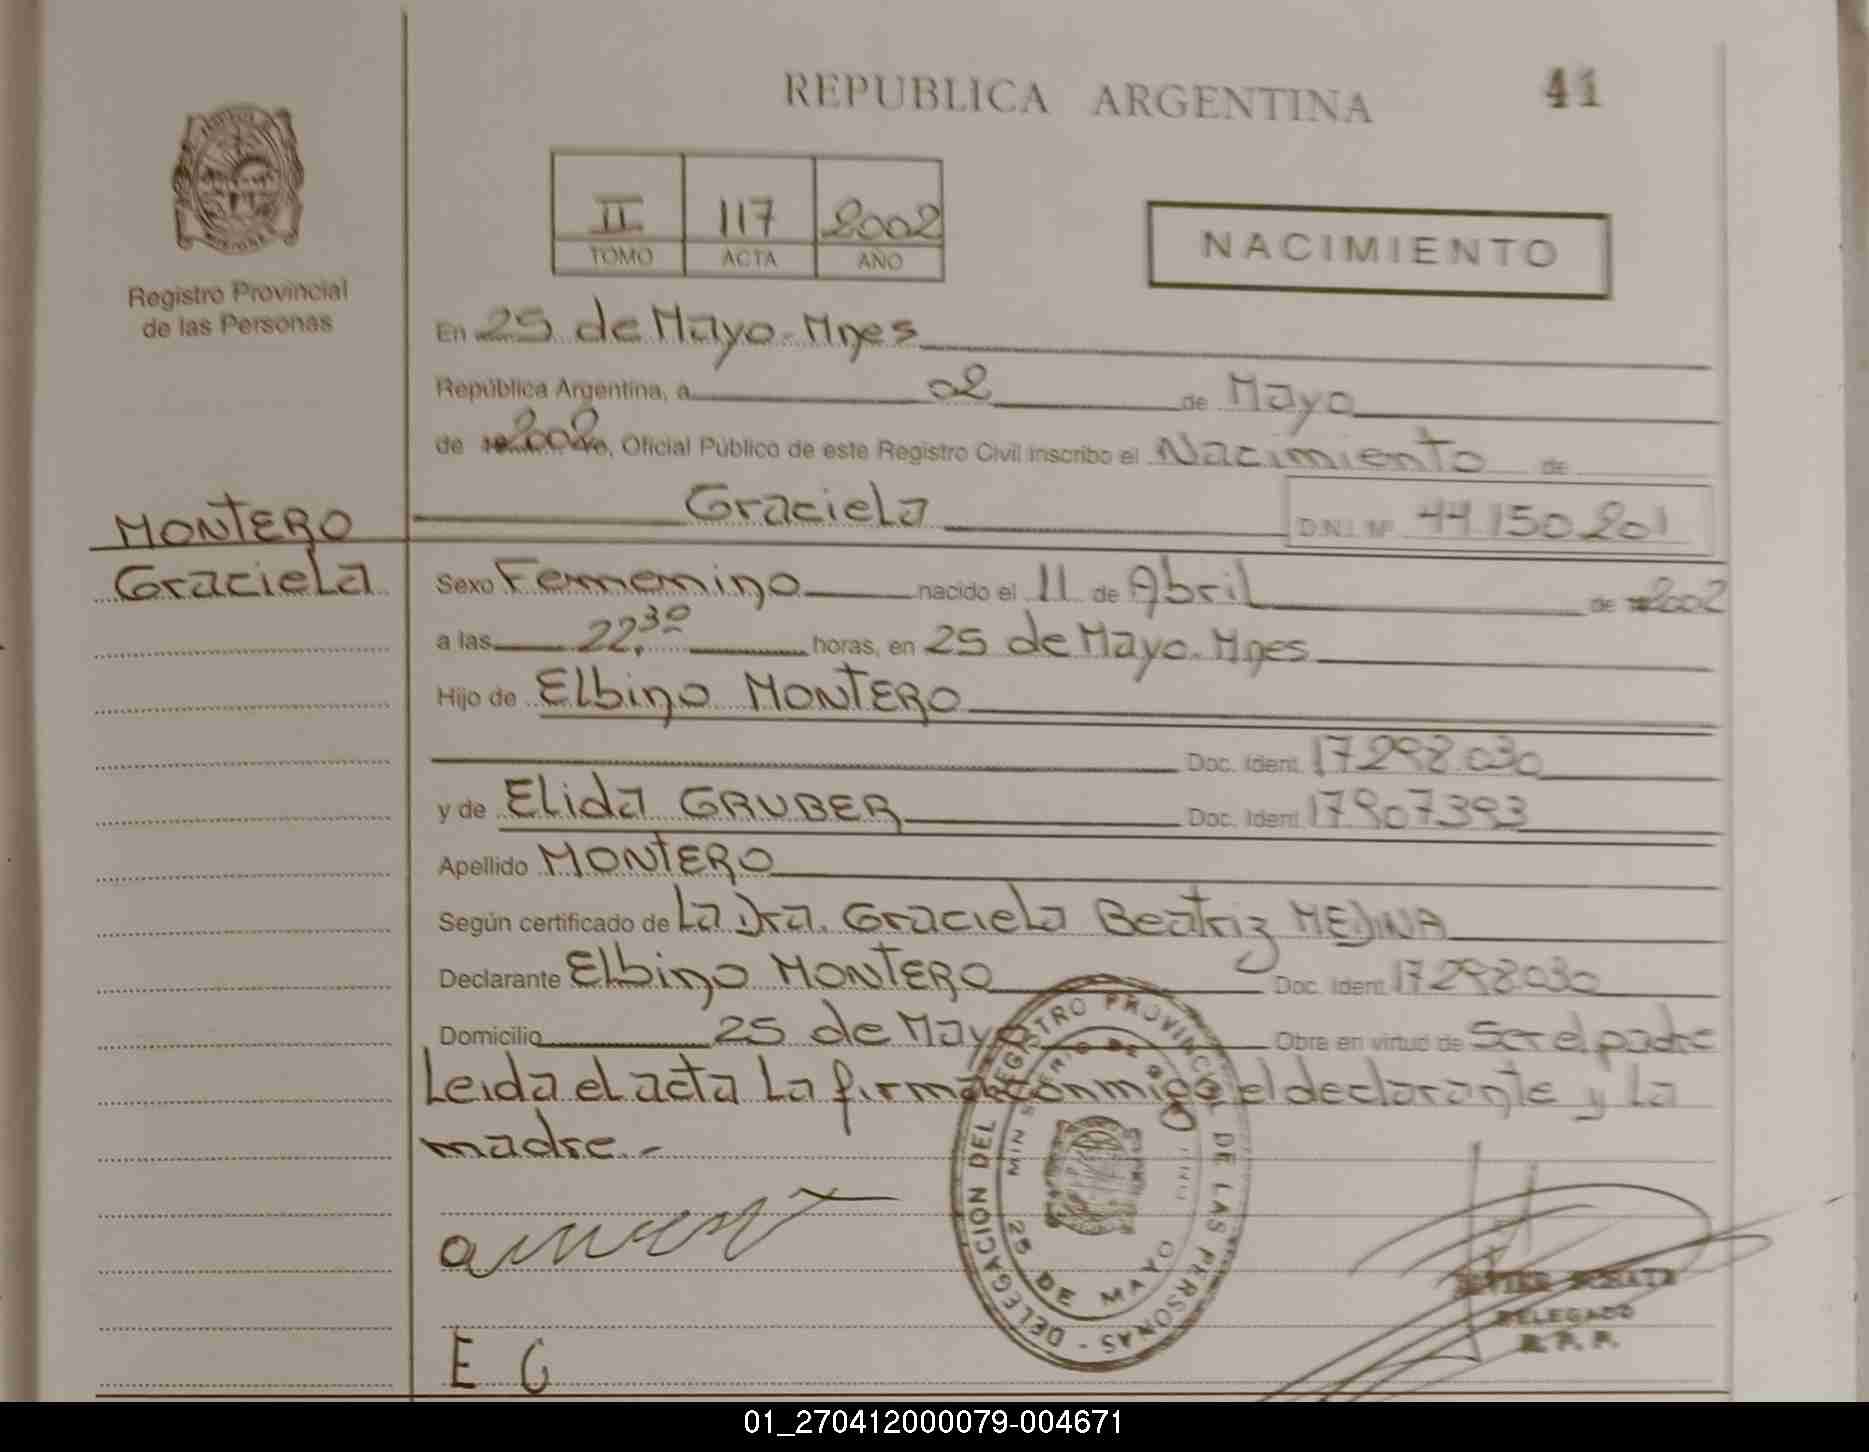 REPUBLICA ARGENTINA
41
II 117 2002
TOMO ACTA AÑO
NACIMIENTO
Registro Provincial
de las Personas
En 25 de Mayo - Mnes
República Argentina, a 02 de Mayo
de 2002, Oficial Público de este Registro Civil inscribo el Nacimiento de
Graciela D.N.I. Nº 44.150.201
MONTERO
Graciela
Sexo Femenino nacido el 11 de Abril de 2002
a las 22,30 horas, en 25 de Mayo - Mnes
Hijo de Elbino MONTERO
Doc. Ident. 17.298.030
y de Elida GRUBER Doc. Ident. 17.907.393
Apellido MONTERO
Según certificado de La Dra. Graciela Beatriz MEDINA
Declarante Elbino MONTERO Doc. Ident. 17.298.030
Domicilio 25 de Mayo Obra en virtud de Ser el padre
Leida el acta La firman conmigo el declarante y La
madre.-
DELEGACION DEL REGISTRO PROVINCIAL DE LAS PERSONAS -
25 DE MAYO
DELEGADO
R. P. P.
E G
01_270412000079-004671